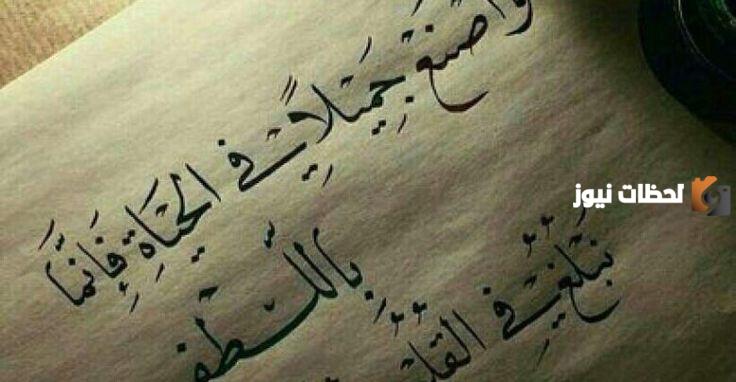 وَاصنع جَمِيلاً في الحَيَاةِ فَإنَّمَا
بِاللُّطفِ
نَبْلُغُ في
لحظات نيوز